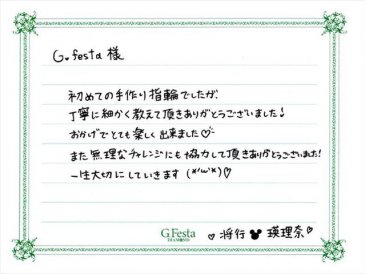 G.festa 様
初めての手作り指輪でしたが、
丁寧に細かく教えて頂きありがとうございました!
おかげでとても楽しく出来ました♡
また無理なチャレンジにも協力して頂きありがとうございました!
一生大切にしていきます (*'ω'*)♡
G.Festa
DIAMOND
♡将行 瑛理奈♡